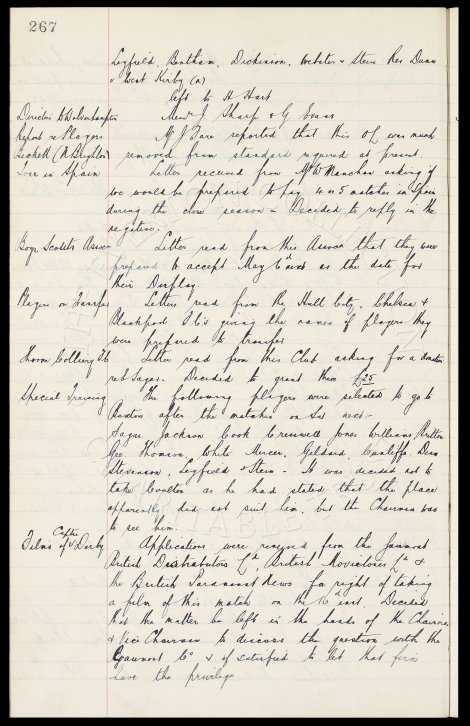 267
Leyfield. Bentham. Dickinson. Webster & Stein Res Dunn
v West Kirby (a)
left to H Hart
Director to Wolverhampton Messrs J Sharp & G Evans
Report re Players Mr J Fare reported that this OL was much
Leckett (N Brighton) removed from standard required at present.
Tour in Spain Letter received from Mr W Manchan asking if
we would be prepared to play 4 or 5 matches in Spain
during the close season - Decided to reply in the
negative.
Boys Scouts Assoc Letter read from this Assocn that they were
prepared to accept May 6th as the date for
their Display.
Players on Transfer Letters read from the Hull City, Chelsea &
Blackpool Cl's giving the names of players they
were prepared to transfer
Thorne Colliery Letter read from this Club asking for a donation
re Sagar. Decided to grant them £25
Special Training The following players were selected to go to
Buxton after the matches on Sat next:-
Sagar Jackson Cook Cresswell Jones Williams Britton
Gee Thomson White Mercer Geldard Cunliffe Dean
Stevenson, Leyfield & Stein - It was decided not to
take Coulter as he had stated that the place
apparently did not suit him, but the Chairman was
to see him.
Films of Cuptie v Derby Applications were received from the Gaumont
British Distributors Ltd, British Movietones Ltd &
the British Paramount News for right of taking
a film of this match on the 16th inst. Decided
that the matter be left in the hands of the Chairman
& Vice Chairman to discuss the question with the
Gaumont Co & if satisfied to let that firm
have the privilege